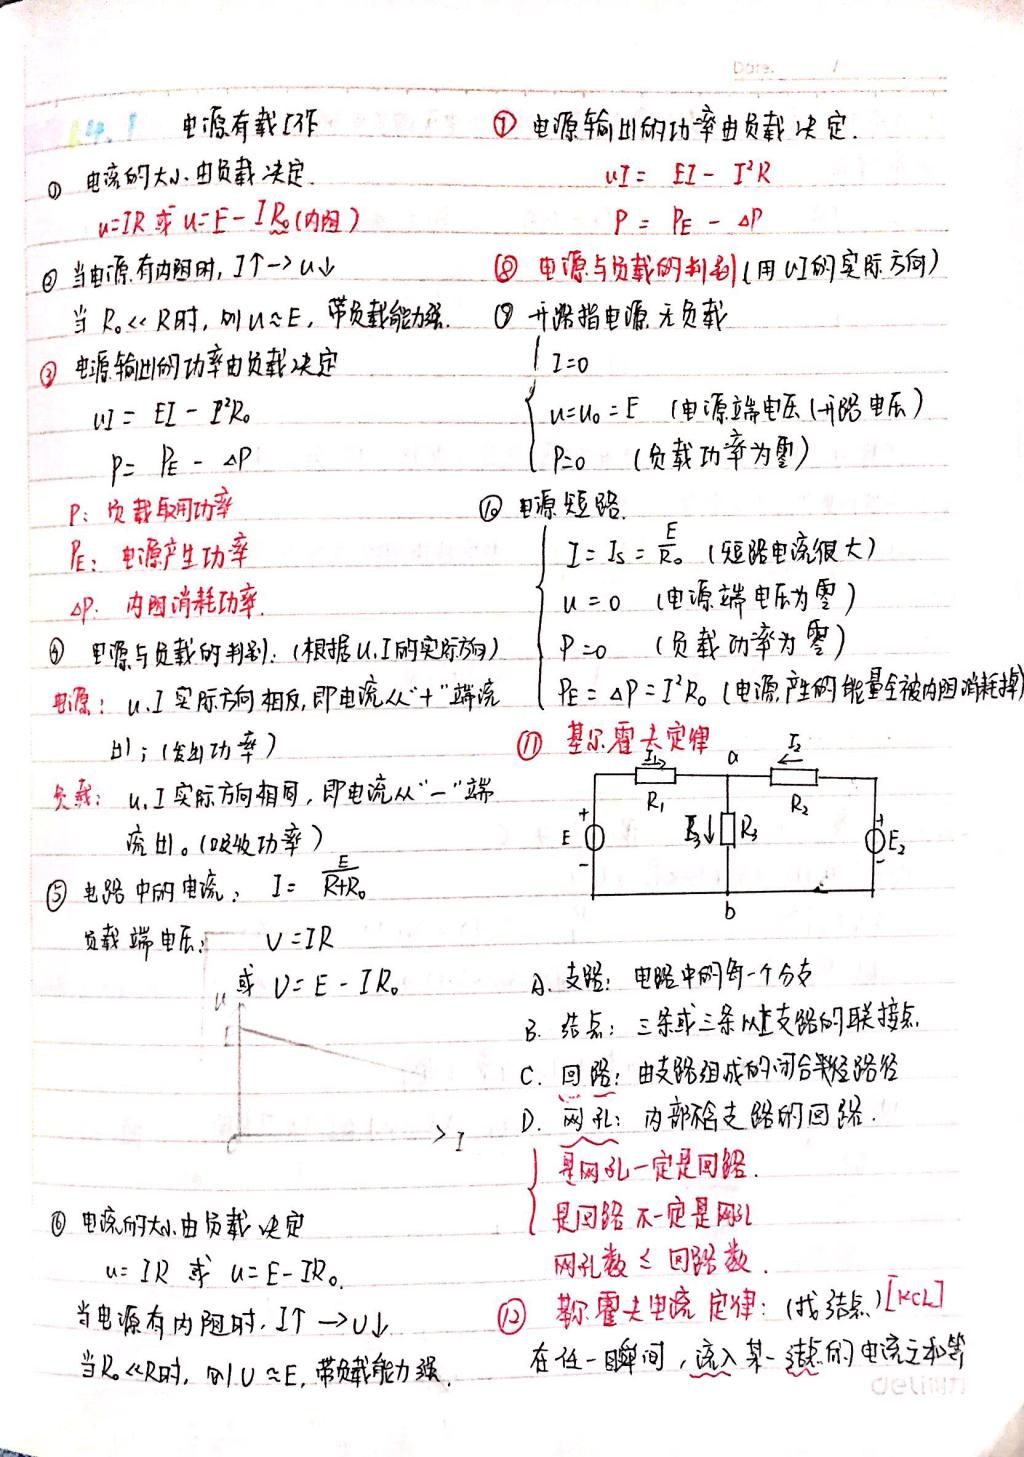 Date. /
电源有载工作
① 电流的大小由负载决定.
u=IR 或 u=E-IR₀(内阻)
② 当电源有内阻时, I↑→u↓
当 R₀<<R时, 则u≈E, 带负载能力强.
③ 电源输出的功率由负载决定
uI = EI - I²R₀
P = PE - ΔP
P: 负载取用功率
PE: 电源产生功率
ΔP. 内阻消耗功率.
④ 电源与负载的判别: (根据u.I的实际方向)
电源: u.I 实际方向相反, 即电流从“+”端流
出; (发出功率)
负载: u.I 实际方向相同, 即电流从“-”端
流出。(吸收功率)
⑤ 电路中的电流: I = E/(R+R₀)
负载端电压: U=IR
或 U=E-IR₀
U
I
⑥ 电流的大小由负载决定
u=IR 或 u=E-IR₀.
当电源有内阻时. I↑→U↓
当R₀<<R时, 则U≈E, 带负载能力强.
⑦ 电源输出的功率由负载决定.
uI = EI - I²R
P = PE - ΔP
⑧ 电源与负载的判别(用UI的实际方向)
⑨ 开路指电源无负载
I=0
u=u₀=E (电源端电压(开路电压)
P=0 (负载功率为零)
⑩ 电源短路.
I = Is = E/R₀ (短路电流很大)
u=0 (电源端电压为零)
P=0 (负载功率为零)
PE = ΔP = I²R₀ (电源产生的能量全被内阻消耗掉)
⑪ 基尔霍夫定律
I₁ a I₂
R₁ R₂
+ E - I₃ R₃ + E₂ -
b
A. 支路: 电路中的每一个分支
B. 结点: 三条或三条以上支路的联接点.
C. 回路: 由支路组成的闭合路径
D. 网孔: 内部不含支路的回路.
是网孔一定是回路.
是回路不一定是网孔
网孔数 ≤ 回路数.
⑫ 基尔霍夫电流定律: (找结点) [KCL]
在任一瞬间, 流入某一结点的电流之和等
deli得力